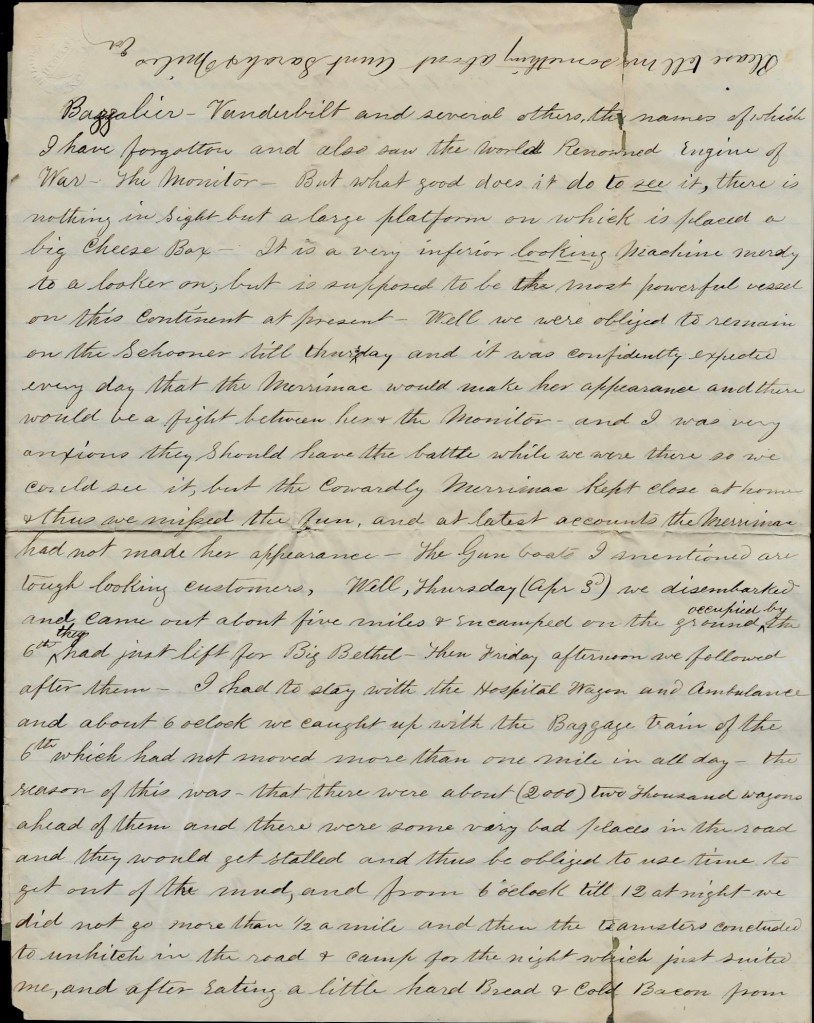 Please tell me something about Aunt Sarah & Julius
&c
Bazzalier - Vanderbilt and several others, the names of which
I have forgotton and also saw the world Renowned Engine of
War - The Monitor - But what good does it do to see it, there is
nothing in sight but a large platform on which is placed a
big Cheese Box - It is a very inferior looking Machine merely
to a looker on, but is supposed to be the most powerful vessel
on this Continent at present - Well we were obliged to remain
on the Schooner till thursday and it was confidently expected
every day that the Merrimac would make her appearance and there
would be a fight between her & the Monitor - and I was very
anxious they should have the battle while we were there so we
could see it, but the Cowardly Merrimac kept close at home
& thus we missed the fun, and at latest accounts the Merrimac
had not made her appearance - The Gun boats I mentioned are
tough looking customers, Well, Thursday (Apr 3d) we disembarked
and came out about five miles & Encamped on the ground occupied by the
6th they had just left for Big Bethel - Then Friday afternoon we followed
after them - I had to stay with the Hospital Wagon and Ambulance
and about 6 oclock we caught up with the Baggage train of the
6th which had not moved more than one mile in all day - the
reason of this was - that there were about (2000) two Thousand wagons
ahead of them and there were some very bad places in the road
and they would get stalled and thus be obliged to use time to
get out of the mud, and from 6 oclock till 12 at night we
did not go more than 1/2 a mile and then the teamsters concluded
to unhitch in the road & camp for the night which just suited
me, and after Eating a little hard Bread & Cold Bacon from